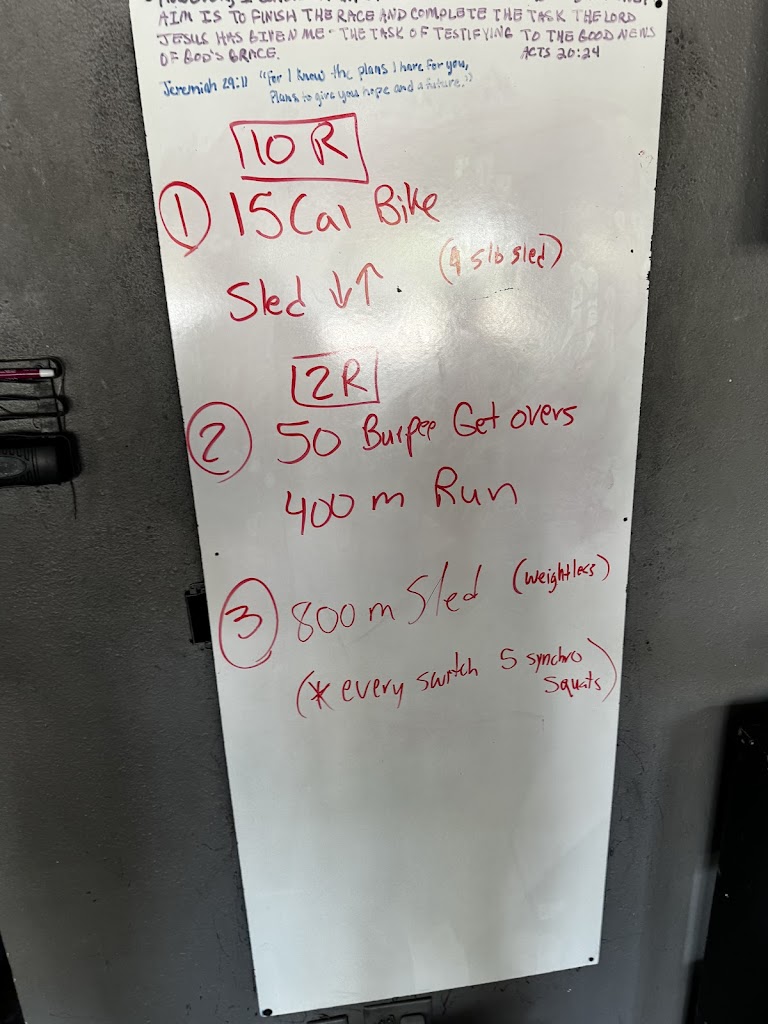 AIM IS TO FINISH THE RACE AND COMPLETE THE TASK THE LORD
JESUS HAS GIVEN ME - THE TASK OF TESTIFYING TO THE GOOD NEWS
OF GOD'S GRACE. ACTS 20:24
Jeremiah 29:11 "For I know the plans I have for you,
Plans to give you hope and a future."
10 R
1 15 Cal Bike
Sled ↓↑ (45lb sled)
2R
2 50 Burpee Get overs
400 m Run
3 800 m Sled (weightless)
(* every switch 5 synchro
squats)